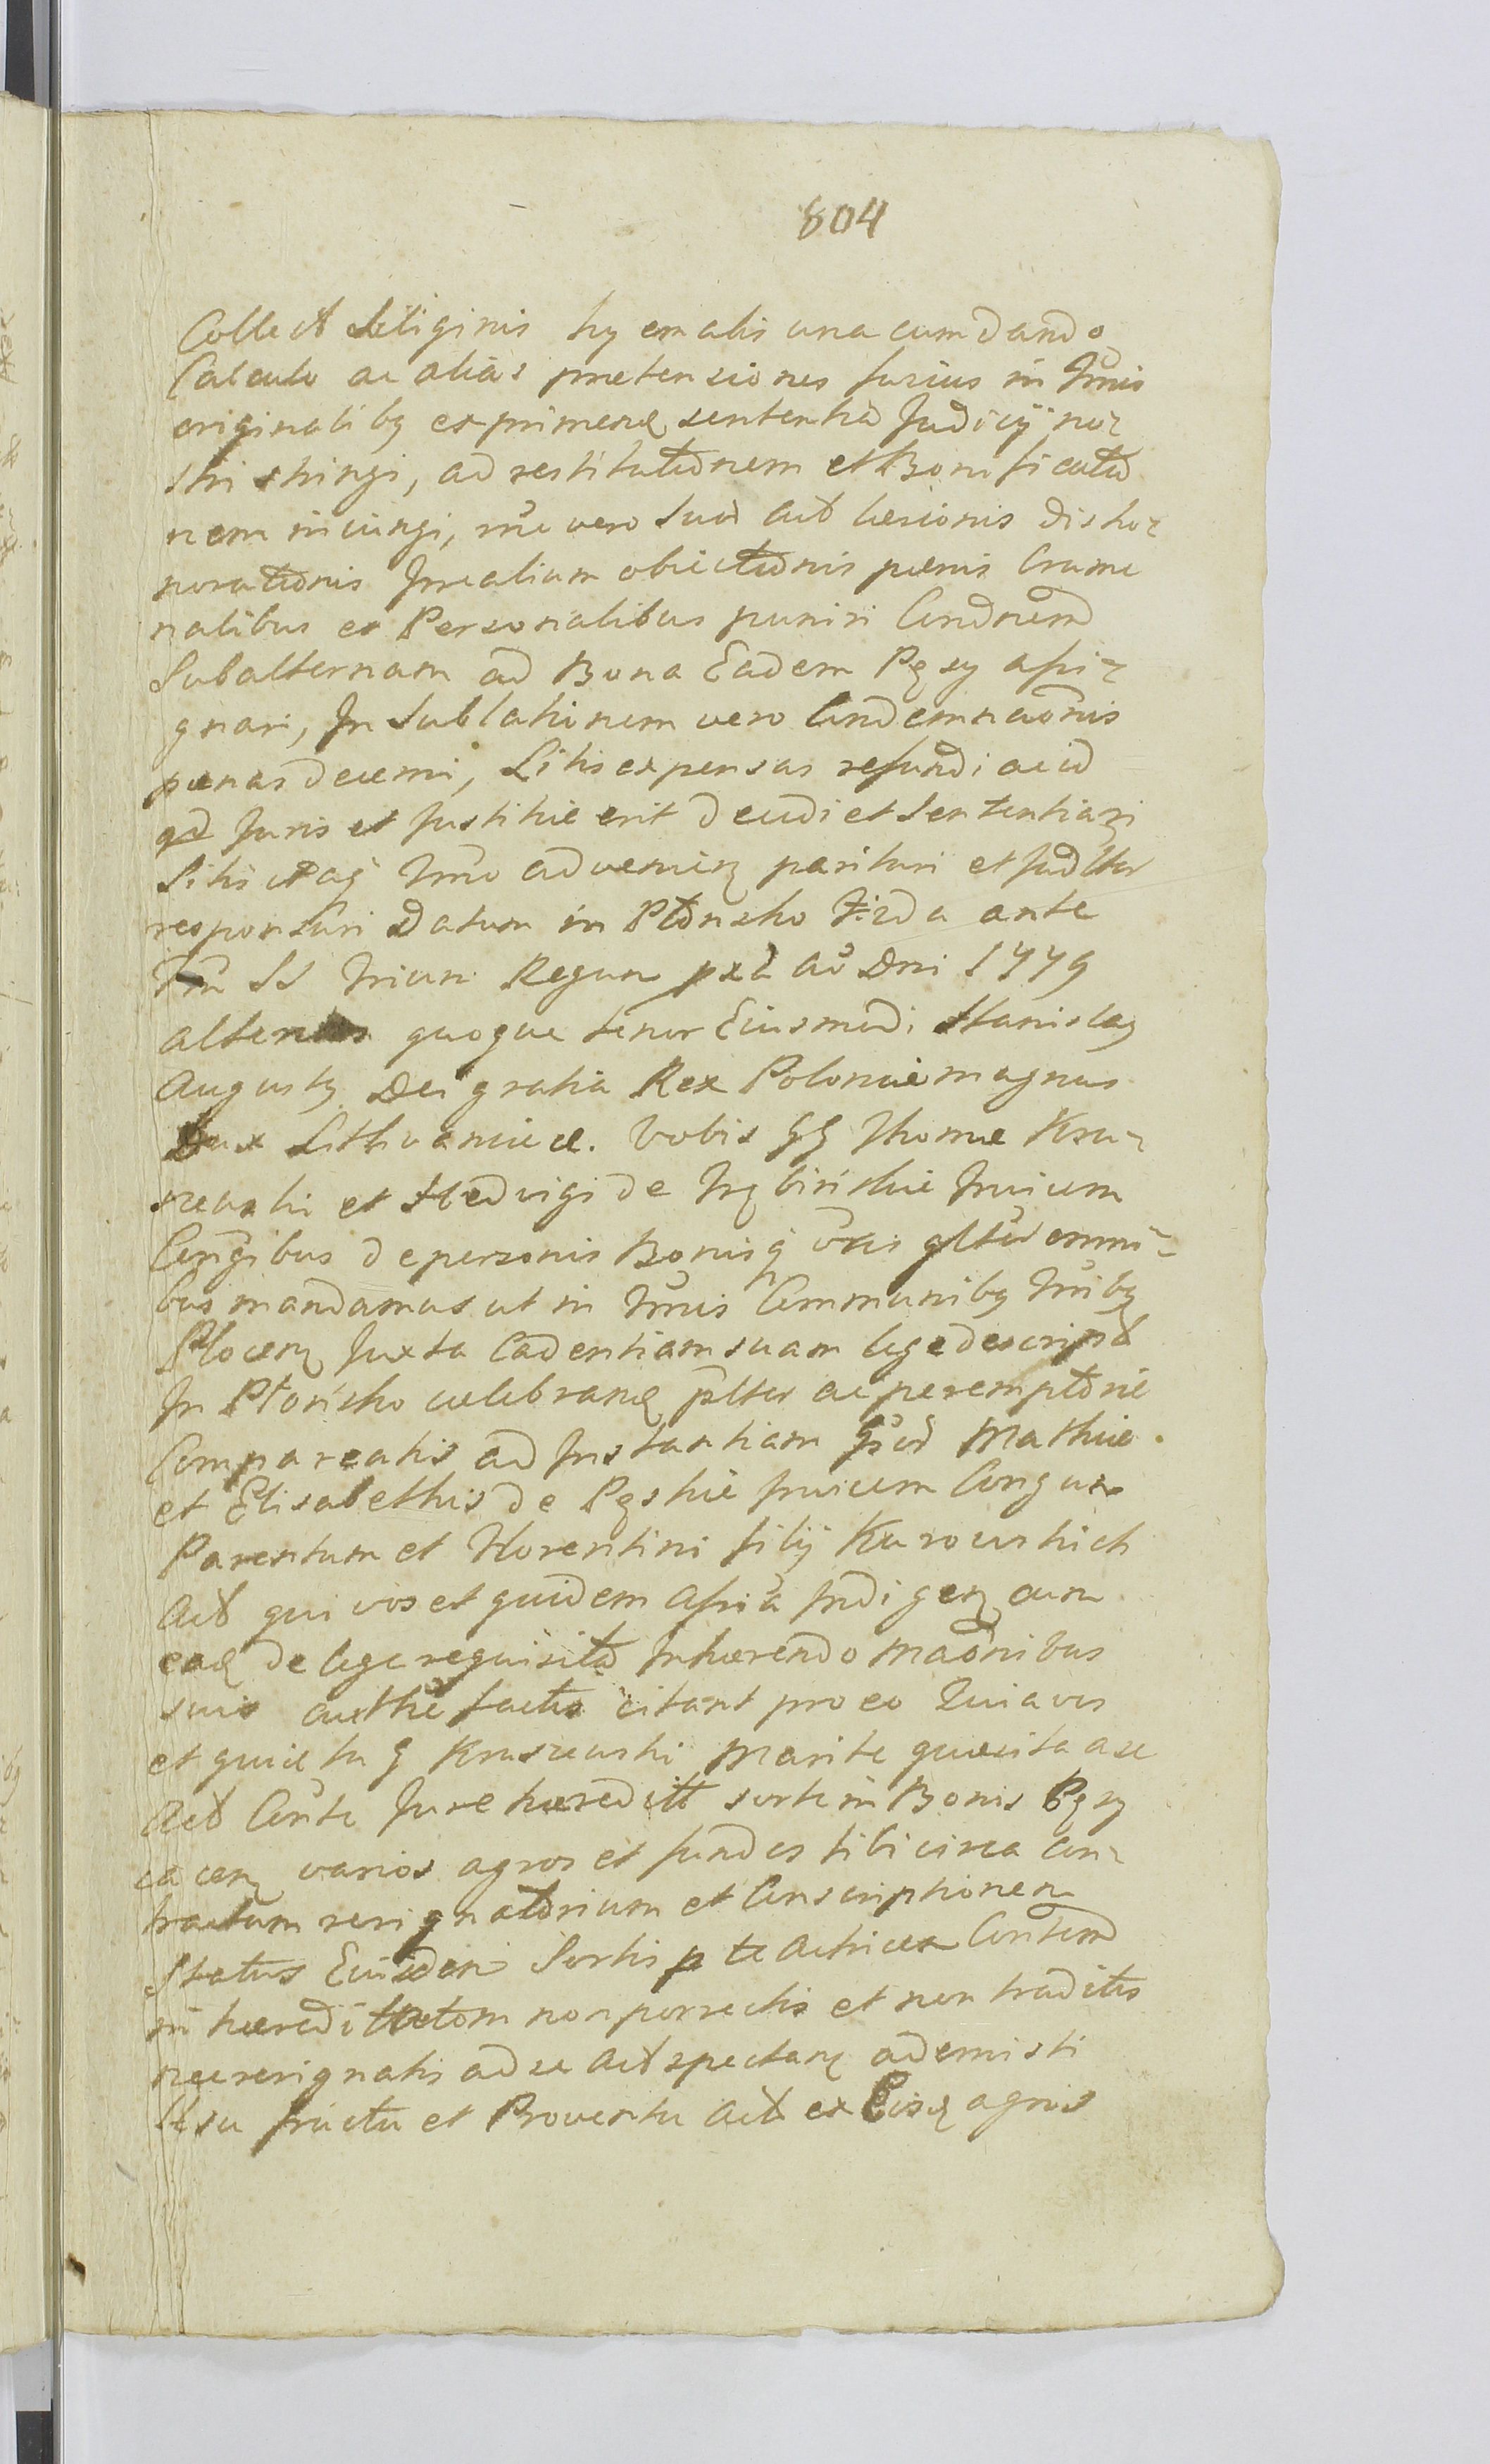 804
Collect Siliginis hyemalis una cum dando
Calculo ac alias prætensiones furius in Tmis
originaliby exprimenđ sententia Judicij no-
stri stringi, ad restitutōnem et Bonificatō
nem iniungi, me vero Suā Act læsionis disho-
noratōnis Irrealium obiectōnis pænis Crimi
nalibus et Personalibus puniri Condnem
Subalternam ad Bona Eadem Pęsy assi-
gnari, In Sublationem vero Condemnaōnis
pænas decerni, Litis expensas refundi ac id
qd Juris et Justitiæ erit decidi et Sententiari
Sitis Tmo advenien parituri et Judlter
responsuri Datum in Płońsko Frđa ante
Fm SS Trium Regum pxa Aō Dni 1779
alterius quoque tenor Eiusmodi Stanislaꝯ
Augustꝯ Dei gratia Rex Poloniæ magnus
Dux Lithvaniæ &. Vobis GG Thomæ Kru-
szewski et Hedvigi de Trębińskie Invicem
Conjgibus de personis Bonisq vris gltr omni-
bus mandamus ut in Tmis Communibꝯ Tribꝯ
Plocen Juxta Cadentiam suam lege descript
In Płońsko celebranđ pltr ac peremptōrie
Compareatis ad Instantiam Gsor Mathiæ
et Elisabethis de Pęskie Invicem Congum
Parentum et Florentini filij Kurowskich
Act qui vos et quidem Assia Indigen cum
eađ de lege requisitā Inhærendo Maōnibus
suis authe factis citant pro eo Quia vos
et quidem tu G Kruszewski Marite quæsita a se
Act Cerite Jure hæreditt sorte in Bonis Pęsy
iacen varios agros et fundos tibi circa Con-
tractum resignatōrium et Conscriptionem
Status Eiusdem Sortis p te Actricem Contem
in hæreditatem non porrectis et non traditis
nec resignatis ad se Act spectan ademisti
Usu fructu et Proventu Act ex Eisđ agris